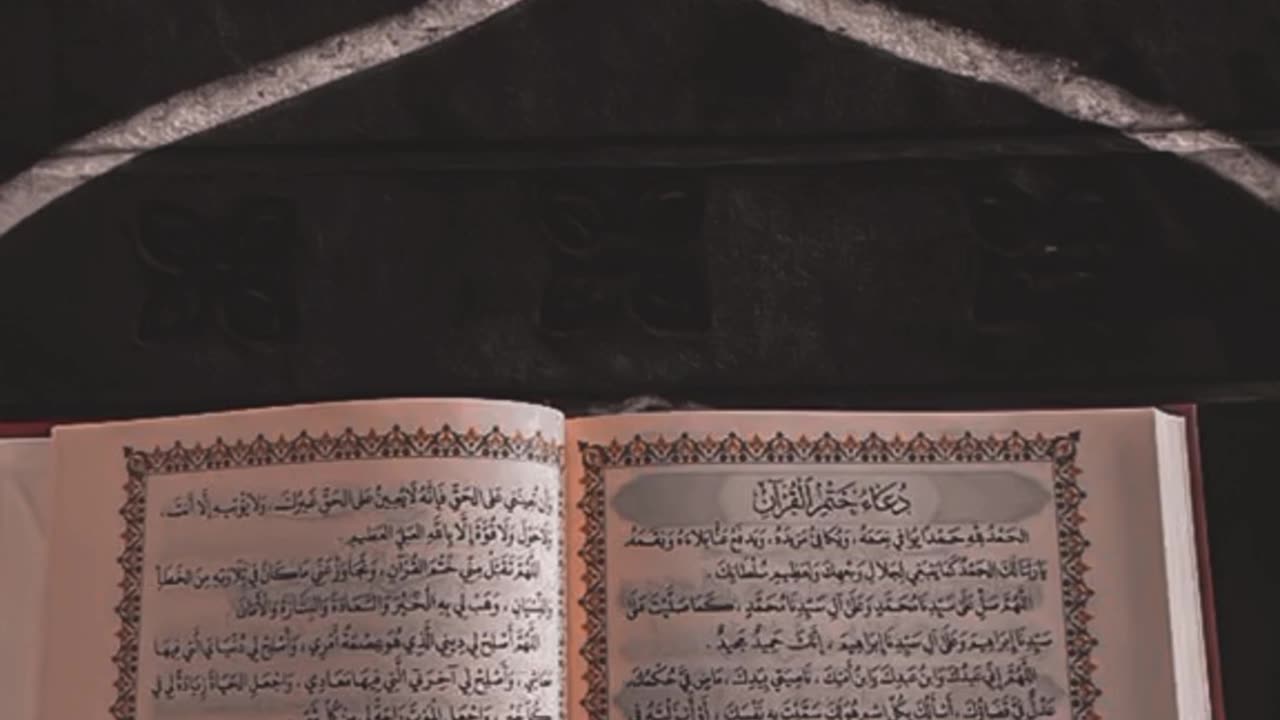 دُعَاءُ خَتْمِ الْقُرْآنِ
الحَمْدُ لِلَّهِ حَمْدًا يُوَافِي نِعَمَهُ ، وَيُكَافِئُ مَزِيدَهُ ، وَيَدْفَعُ عَنَّا بَلَاءَهُ وَنِقَمَهُ
يَا رَبَّنَا لَكَ الحَمْدُ كَمَا يَنْبَغِي لِجَلَالِ وَجْهِكَ وَلِعَظِيمِ سُلْطَانِكَ .
اللَّهُمَّ صَلِّ عَلَى سَيِّدِنَا مُحَمَّدٍ وَعَلَى آلِ سَيِّدِنَا مُحَمَّدٍ ، كَمَا صَلَّيْتَ عَلَى
سَيِّدِنَا إِبْرَاهِيمَ وَعَلَى آلِ سَيِّدِنَا إِبْرَاهِيمَ ، إِنَّكَ حَمِيدٌ مَجِيدٌ .
اللَّهُمَّ إِنِّي عَبْدُكَ وَابْنُ عَبْدِكَ وَابْنُ أَمَتِكَ ، نَاصِيَتِي بِيَدِكَ ، مَاضٍ فِيَّ حُكْمُكَ
عَدْلٌ فِيَّ قَضَاؤُكَ ، أَسْأَلُكَ بِكُلِّ اسْمٍ هُوَ لَكَ سَمَّيْتَ بِهِ نَفْسَكَ ، أَوْ أَنْزَلْتَهُ فِي
عَلَى الحَقِّ فَإِنَّهُ لَا يُعِينُ عَلَى الحَقِّ غَيْرُكَ ، وَلَا يُؤْتِيهِ إِلَّا أَنْتَ ،
وَلَا حَوْلَ وَلَا قُوَّةَ إِلَّا بِاللَّهِ العَلِيِّ العَظِيمِ .
اللَّهُمَّ تَقَبَّلْ مِنِّي خَتْمَ القُرْآنِ ، وَتَجَاوَزْ عَنِّي مَا كَانَ فِي تِلَاوَتِهِ مِنَ الخَطَأِ
وَالنِّسْيَانِ ، وَهَبْ لِي بِهِ الْخَيْرَ وَالسَّعَادَةَ وَالبِشَارَةَ وَالأَمَانَ
اللَّهُمَّ أَصْلِحْ لِي دِينِي الَّذِي هُوَ عِصْمَةُ أَمْرِي ، وَأَصْلِحْ لِي دُنْيَايَ الَّتِي فِيهَا
مَعَاشِي ، وَأَصْلِحْ لِي آخِرَتِي الَّتِي فِيهَا مَعَادِي ، وَاجْعَلِ الحَيَاةَ زِيَادَةً لِي فِي